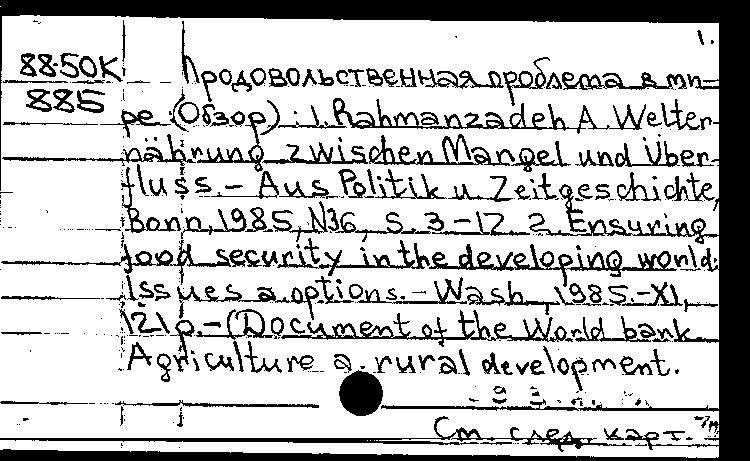 1.
88-50К
885
Продовольственная проблема в ми-
ре (Обзор) : 1. Rahmanzadeh A. Welter-
nährung zwischen Mangel und Über-
fluss. – Aus Politik u. Zeitgeschichte,
Bonn, 1985, N36, S. 3-17. 2. Ensuring
food security in the developing world:
Issues a. options. – Wash., 1985. – XI,
121 p. – (Document of the World bank.
Agriculture a. rural development.
См. след. карт.